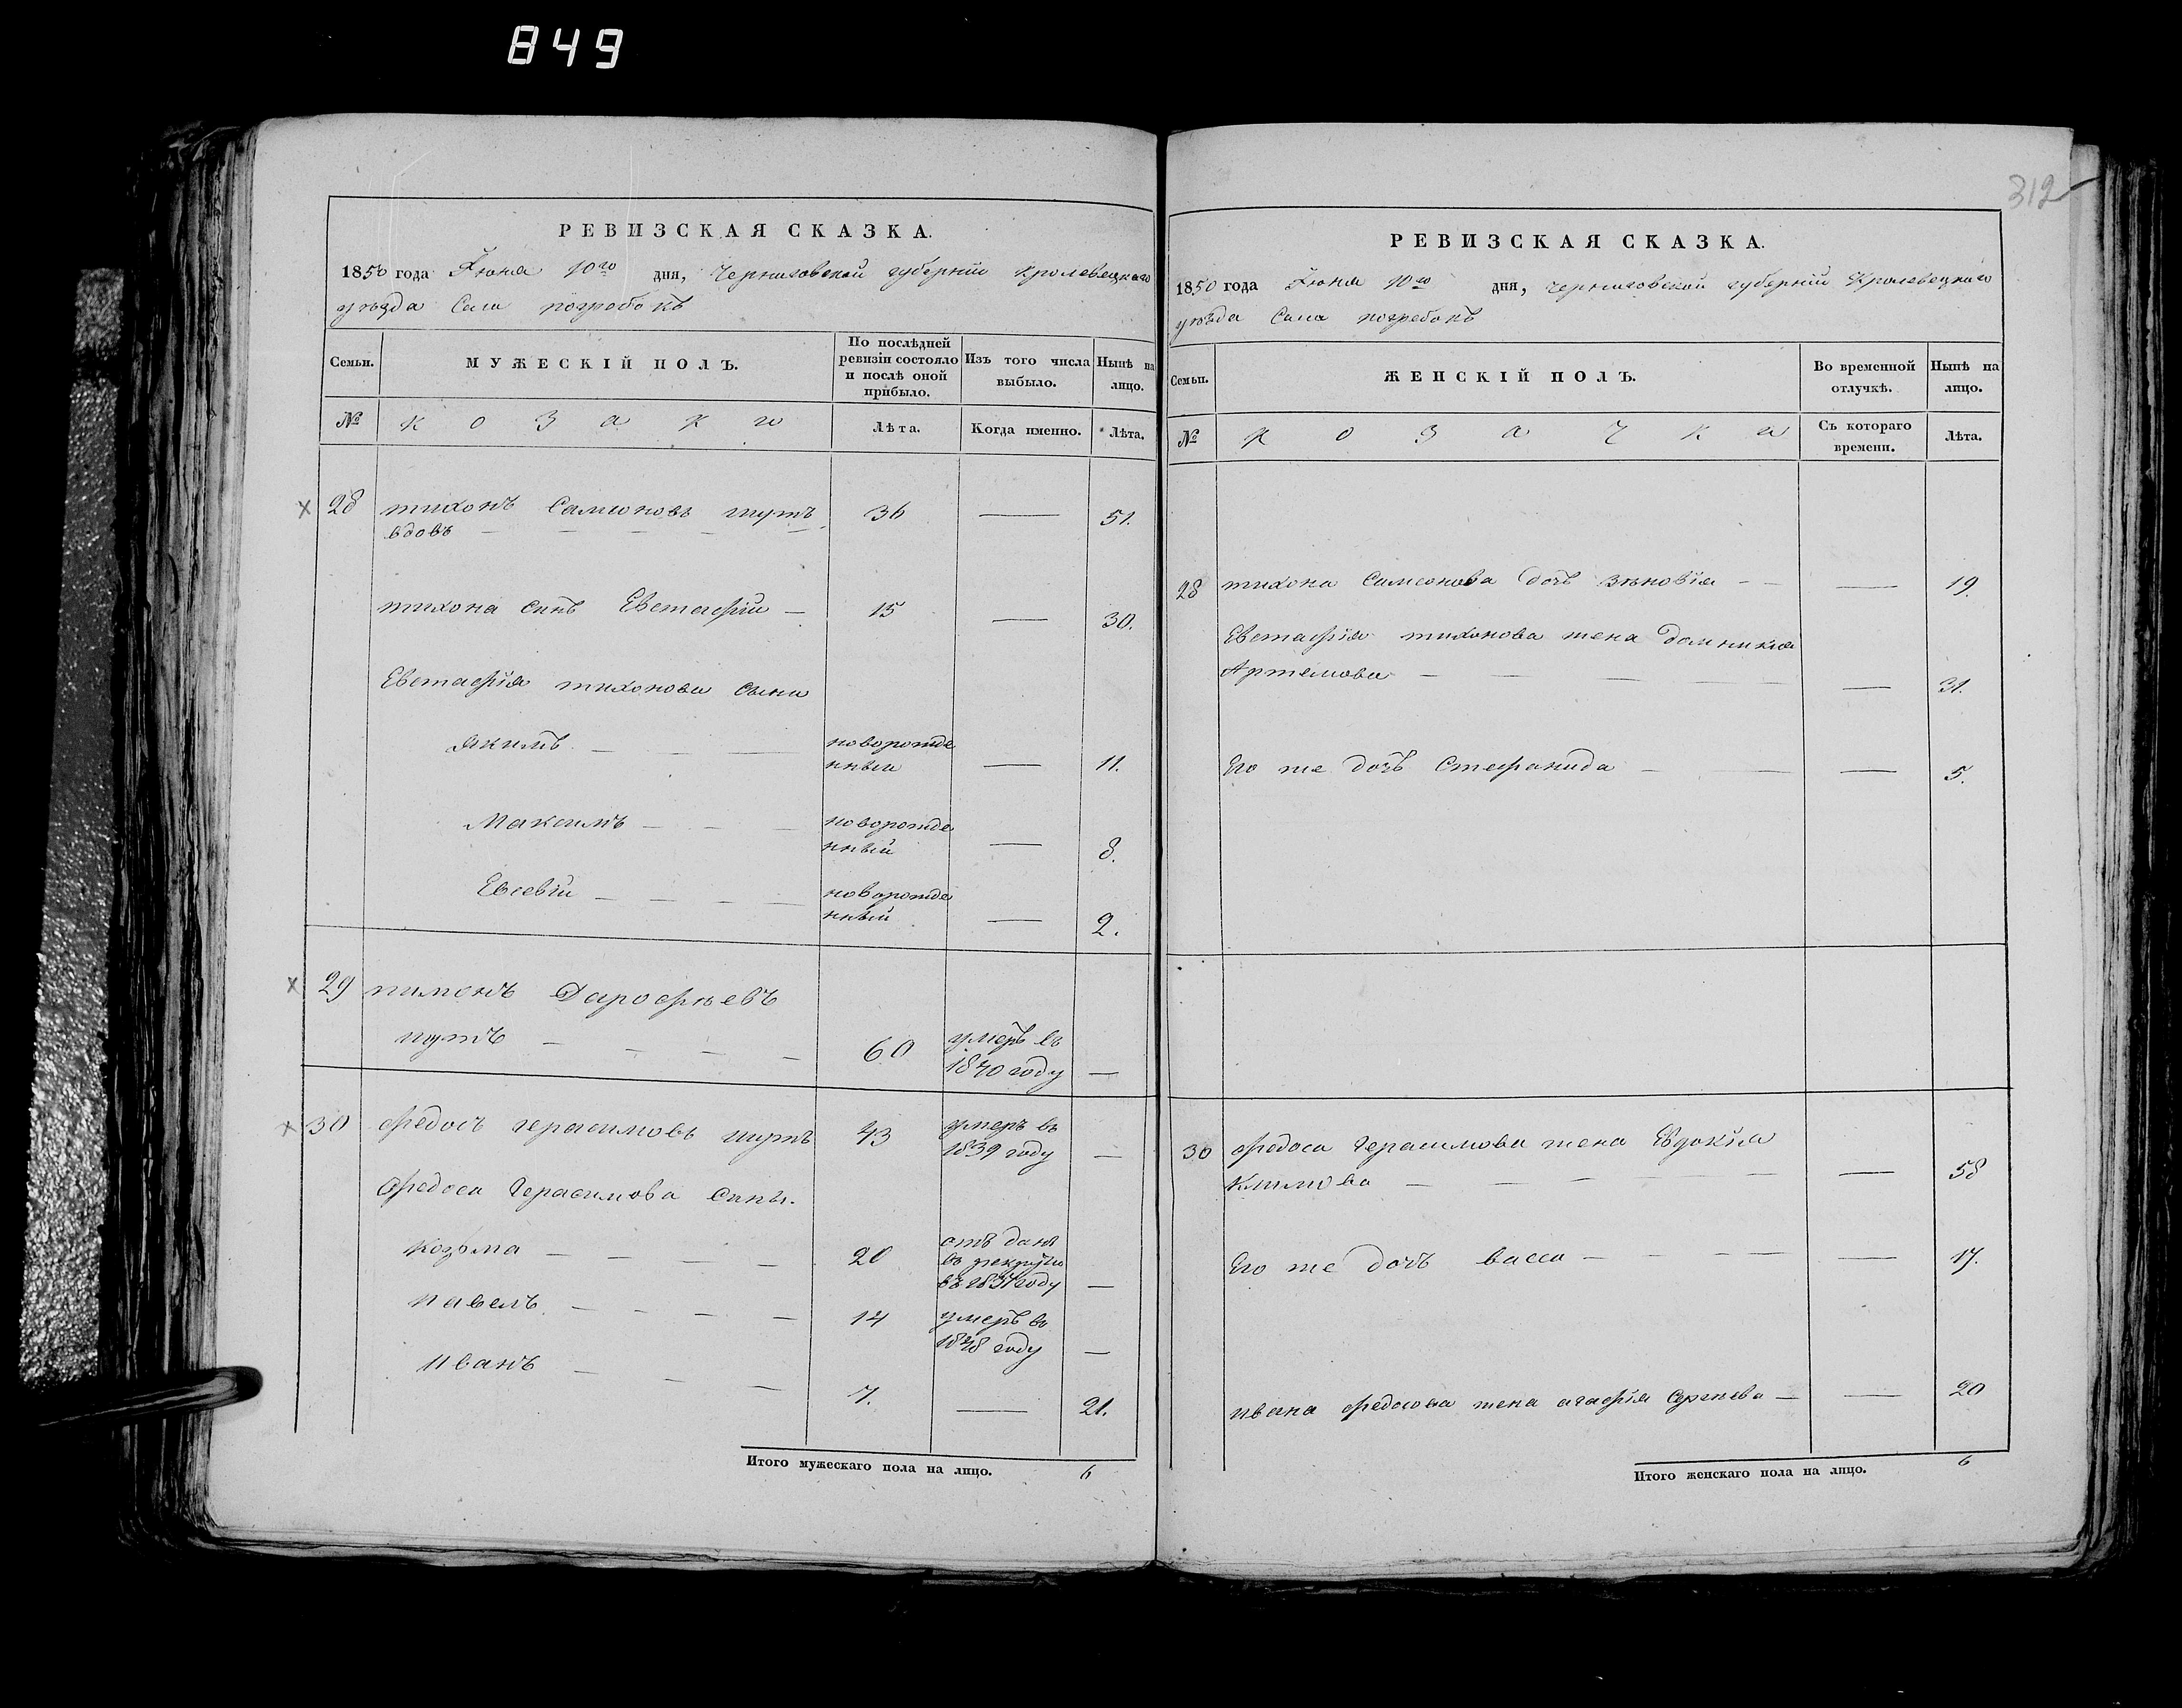 849
312
РЕВИЗСКАЯ СКАЗКА.
1850 года Іюня 10го дня, Черниговской губерніи Кролевецкаго
уѣзда Села погребокъ
Семьи.
МУЖЕСКІЙ ПОЛЪ.
По послѣдней
ревизіи состояло
и послѣ оной
прибыло.
Изъ того числа
выбыло.
Нынѣ на
лицо.
№
козаки
Лѣта.
Когда именно.
Лѣта.
28 тихонъ Самсоновъ шутъ 36 — 51.
вдовъ
тихона сынъ Евстафій — 15 — 30.
Евстафія тихонова сыны
Якимъ новорожде
нный — 11.
Максимъ новорожде
нный — 8.
Евсевій новорожде
нный — 2.
29 пименъ Дарофѣевъ
шутъ 60 умеръ въ
1840 году —
30 федосъ герасимовъ шутъ 43 умеръ въ
1839 году —
Федоса Герасимова сыны.
Козьма 20 отъ данъ
въ рекруты
въ 1837 году —
павелъ 14 умеръ въ
1848 году —
иванъ 7. — 21.
Итого мужескаго пола на лицо. 6
РЕВИЗСКАЯ СКАЗКА.
1850 года Іюня 10го дня, черниговской губерніи Кролевецкаго
уѣзда Села погребокъ
Семьи.
ЖЕНСКІЙ ПОЛЪ.
Во временной
отлучкѣ.
Нынѣ на
лицо.
№
козачки
Съ котораго
времени.
Лѣта.
28 тихона Самсонова дочь зѣновія — 19.
Евстафія тихонова жена домникія
Артемова — 31.
Его же дочь Стефанида — 5.
30 федоса Герасимова жена Евдокія
Климова — 58
Его же дочь васса — 17.
ивана федосова жена агафія Сергѣева — 20
Итого женскаго пола на лицо. 6